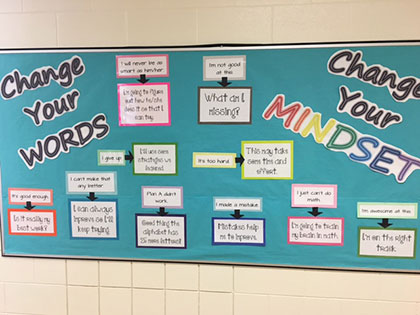 Change
Your
WORDS
I will never be as
smart as him/her
I'm going to figure
out how he/she
does it so that I
can try
I'm not good
at this
What am I
missing?
Change
Your
MINDSET
I give up
I'll use some
strategies we
learned
It's too hard
This may take
some time and
effort.
It's good enough
Is it really my
best work?
I can't make that
any better
I can always
improve so I'll
keep trying.
Plan A didn't
work
Good thing the
alphabet has
25 more letters!
I made a mistake
Mistakes help
me to improve.
I just can't do
math
I'm going to train
my brain in math.
I'm awesome at this
I'm on the right
track